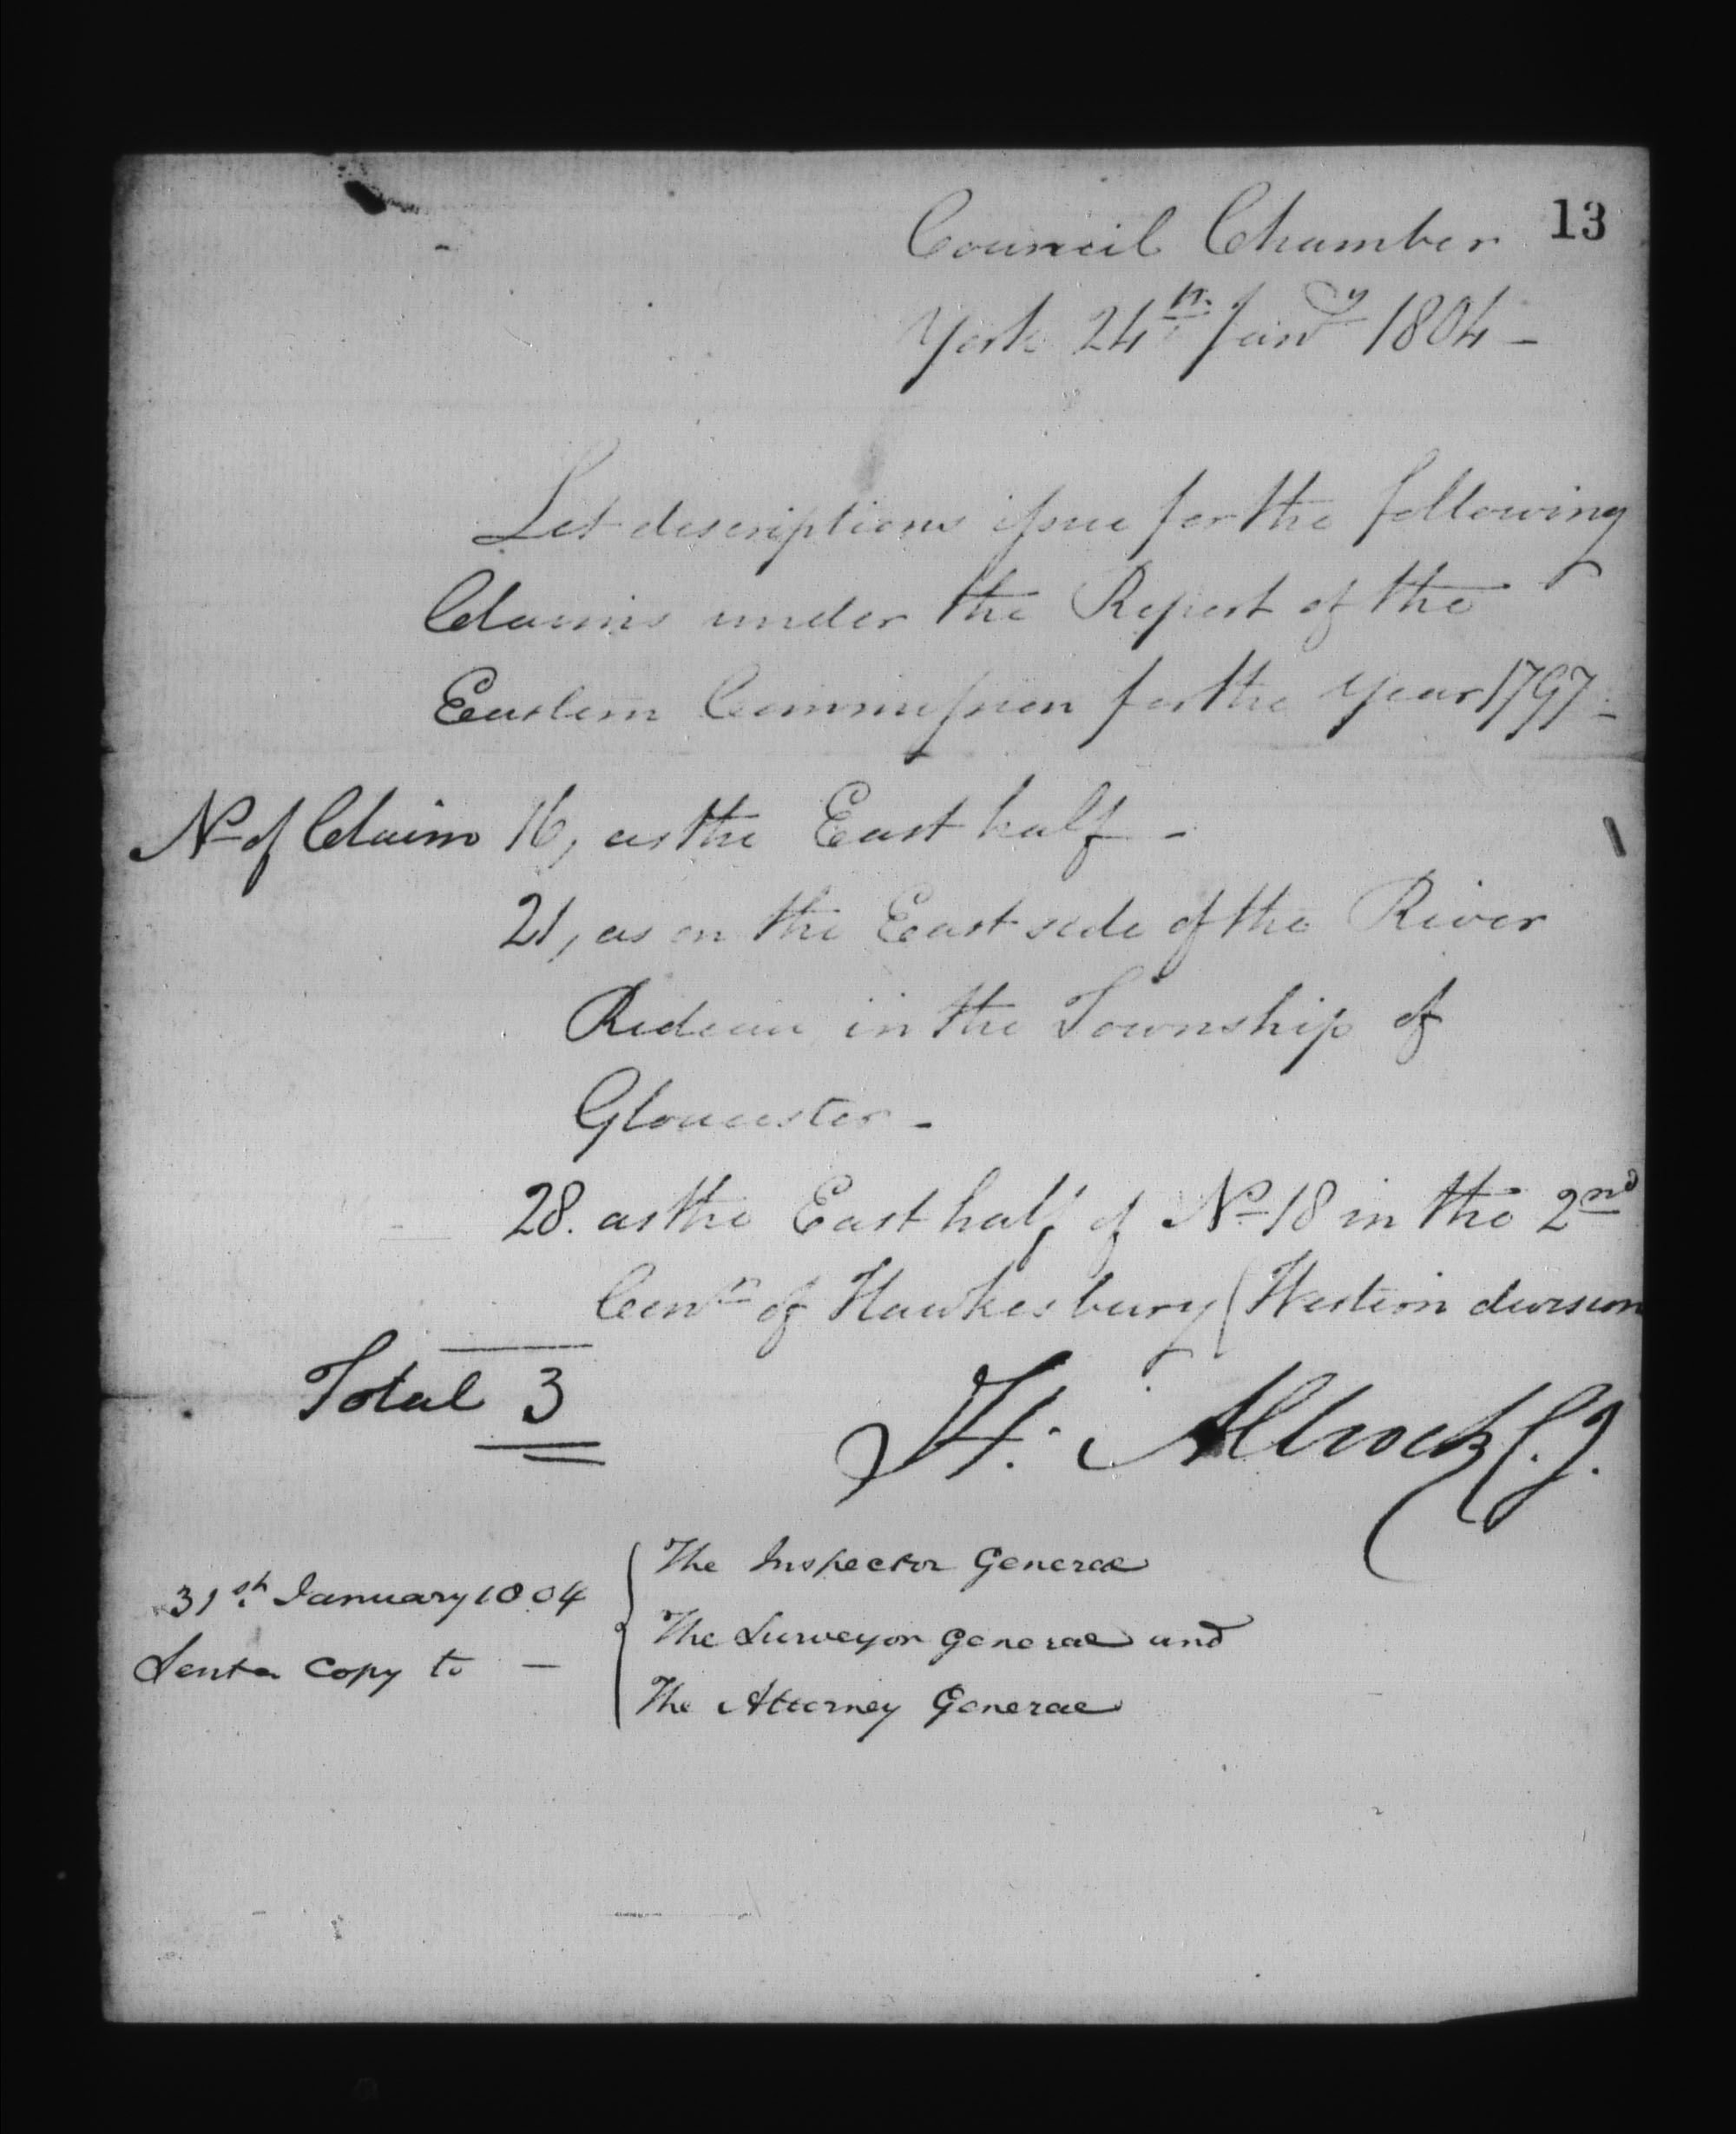 Council Chamber 13
York 24th Jany 1804 –
Let descriptions issue for the following
Claims under the Report of the
Eastern Commission for the Year 1797 –
No of Claim 16, as the East half –
21, as on the East side of the River
Rideau in the Township of
Gloucester –
28. as the East half of No 18 in the 2nd
Conn of Hawkesbury (Western division
Total 3
H. Allcock C.J.
31st January 1804
Sent a Copy to –
The Inspector General
The Surveyor General and
The Attorney General